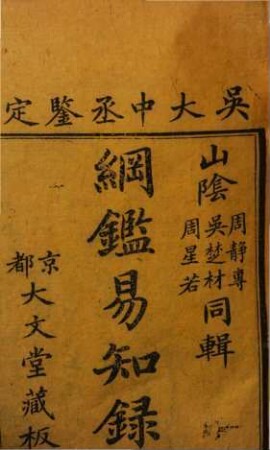 吳大中丞鑒定
山陰
周靜專
吳楚材
周星若
同輯
綱鑑易知録
京都大文堂藏板